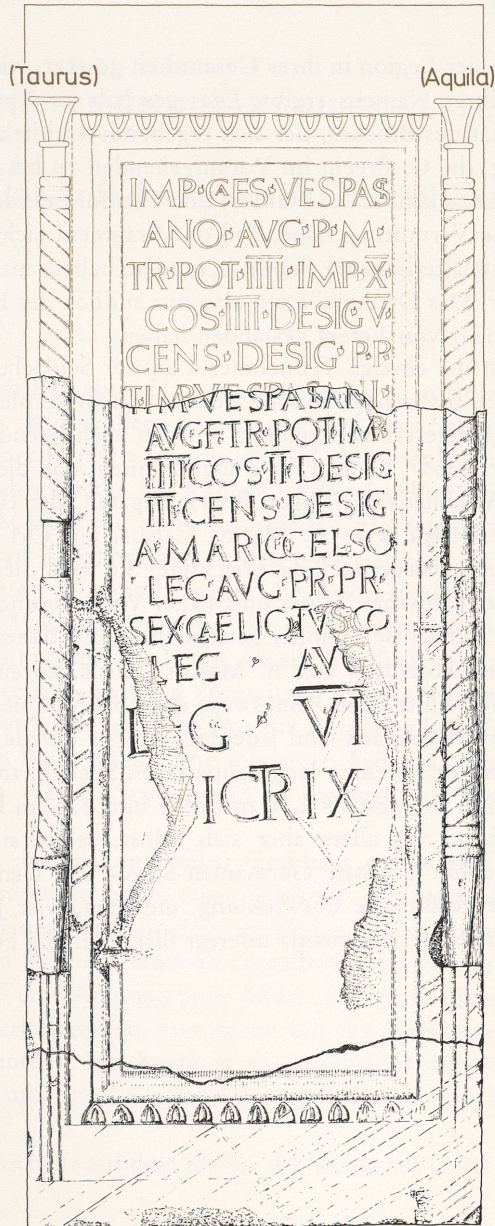 (Taurus) (Aquila)
IMP·CAES·VESPAS
ANO·AVG·P·M·
TR·POT·I̅I̅I̅I̅·IMP·X̅·
COS·I̅I̅I̅I̅·DESIG·V̅·
CENS·DESIG·P·P·
T·IMP·VESPASANI·
AVG·F·TR·POT·IMP
I̅I̅I̅I̅·COS·I̅I̅·DESIG
I̅I̅I̅·CENS·DESIG
A·MARIO·CELSO
LEG·AVG·PR·PR·
SEX·CAELIO·TVSCO
LEG · AVG
LEG · V̅I̅
ICTRIX